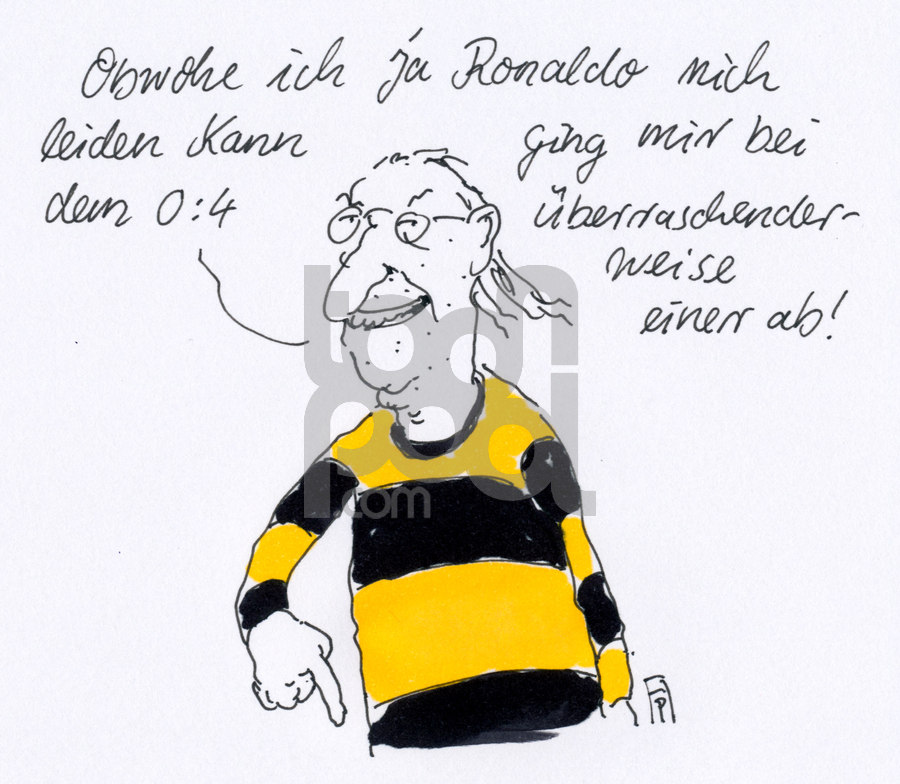 Obwohl ich ja Ronaldo nich
leiden kann ging mir bei
dem 0:4 überraschender-
weise
einer ab!
toonpool
.com